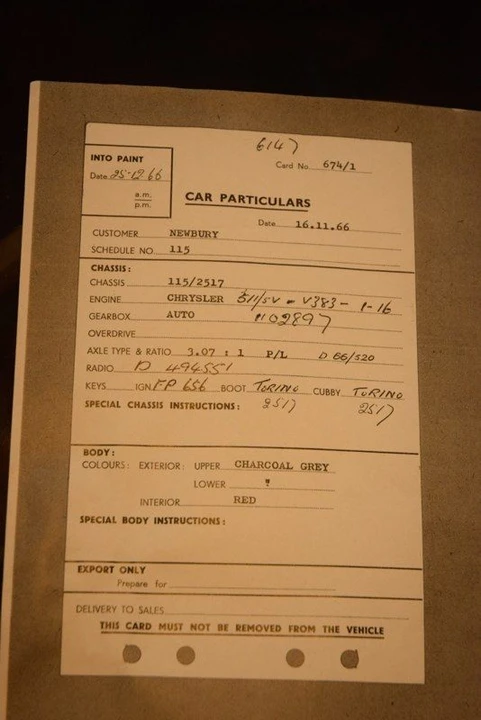 6147
INTO PAINT
Card No. 674/1
Date 25-12-66
a.m.
p.m.
CAR PARTICULARS
Date 16.11.66
CUSTOMER NEWBURY
SCHEDULE NO. 115
CHASSIS:
CHASSIS 115/2517
ENGINE CHRYSLER 511/5V - V383 - 1-16
GEARBOX AUTO N102897
OVERDRIVE
AXLE TYPE & RATIO 3.07 : 1 P/L D 66/520
RADIO D 494551
KEYS IGN. FP 656 BOOT TORINO CUBBY TORINO
SPECIAL CHASSIS INSTRUCTIONS: 2517 2517
BODY:
COLOURS: EXTERIOR: UPPER CHARCOAL GREY
LOWER "
INTERIOR RED
SPECIAL BODY INSTRUCTIONS:
EXPORT ONLY
Prepare for
DELIVERY TO SALES
THIS CARD MUST NOT BE REMOVED FROM THE VEHICLE